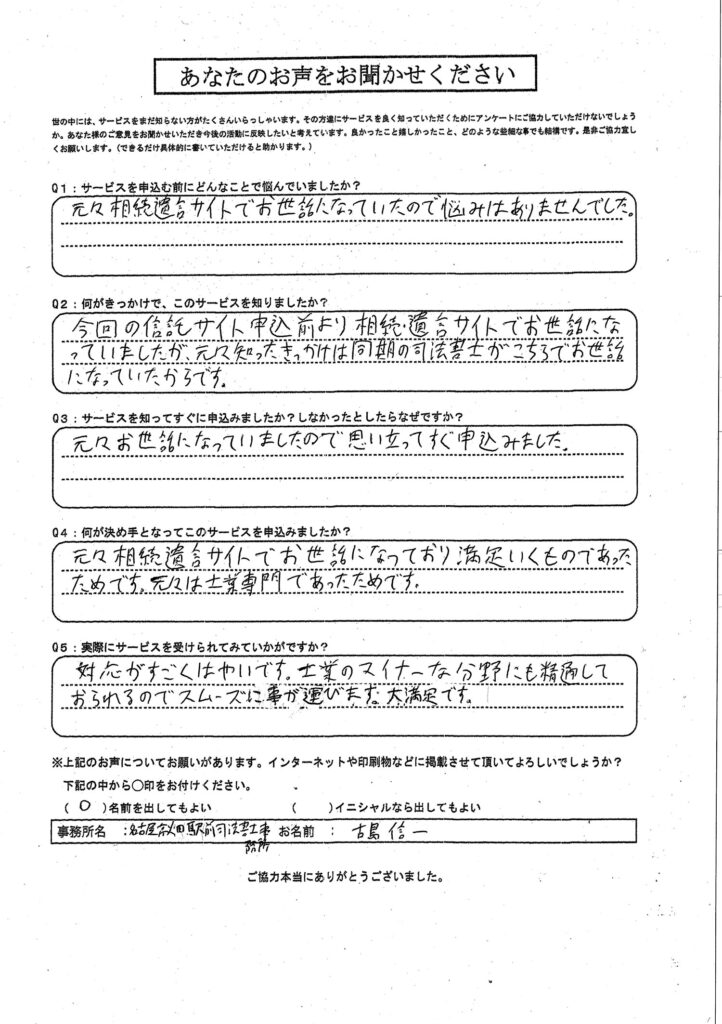 あなたのお声をお聞かせください
世の中には、サービスをまだ知らない方がたくさんいらっしゃいます。その方達にサービスを良く知っていただくためにアンケートにご協力していただけないでしょう
か。あなた様のご意見をお聞かせいただき今後の活動に反映したいと考えています。良かったこと嬉しかったこと、どのような些細な事でも結構です。是非ご協力宜し
くお願いします。（できるだけ具体的に書いていただけると助かります。）
Q1：サービスを申込む前にどんなことで悩んでいましたか？
元々相続遺言サイトでお世話になっていたので悩みはありませんでした。
Q2：何がきっかけで、このサービスを知りましたか？
今回の信託サイト申込前より相続・遺言サイトでお世話にな
っていましたが、元々知ったきっかけは同期の司法書士がこちらでお世話
になっていたからです。
Q3：サービスを知ってすぐに申込みましたか？しなかったとしたらなぜですか？
元々お世話になっていましたので思い立ってすぐ申込みました。
Q4：何が決め手となってこのサービスを申込みましたか？
元々相続遺言サイトでお世話になっており満足いくものであった
ためです。元々は士業専門であったためです。
Q5：実際にサービスを受けられてみていかがですか？
対応がすごくはやいです。士業のマイナーな分野にも精通して
おられるのでスムーズに事が運びます。大満足です。
※上記のお声についてお願いがあります。インターネットや印刷物などに掲載させて頂いてよろしいでしょうか？
下記の中から○印をお付けください。
（ ○ ）名前を出してもよい （ ）イニシャルなら出してもよい
事務所名 ：名古屋 駅前司法書士事 お名前 ： 古島信一
務所
ご協力本当にありがとうございました。